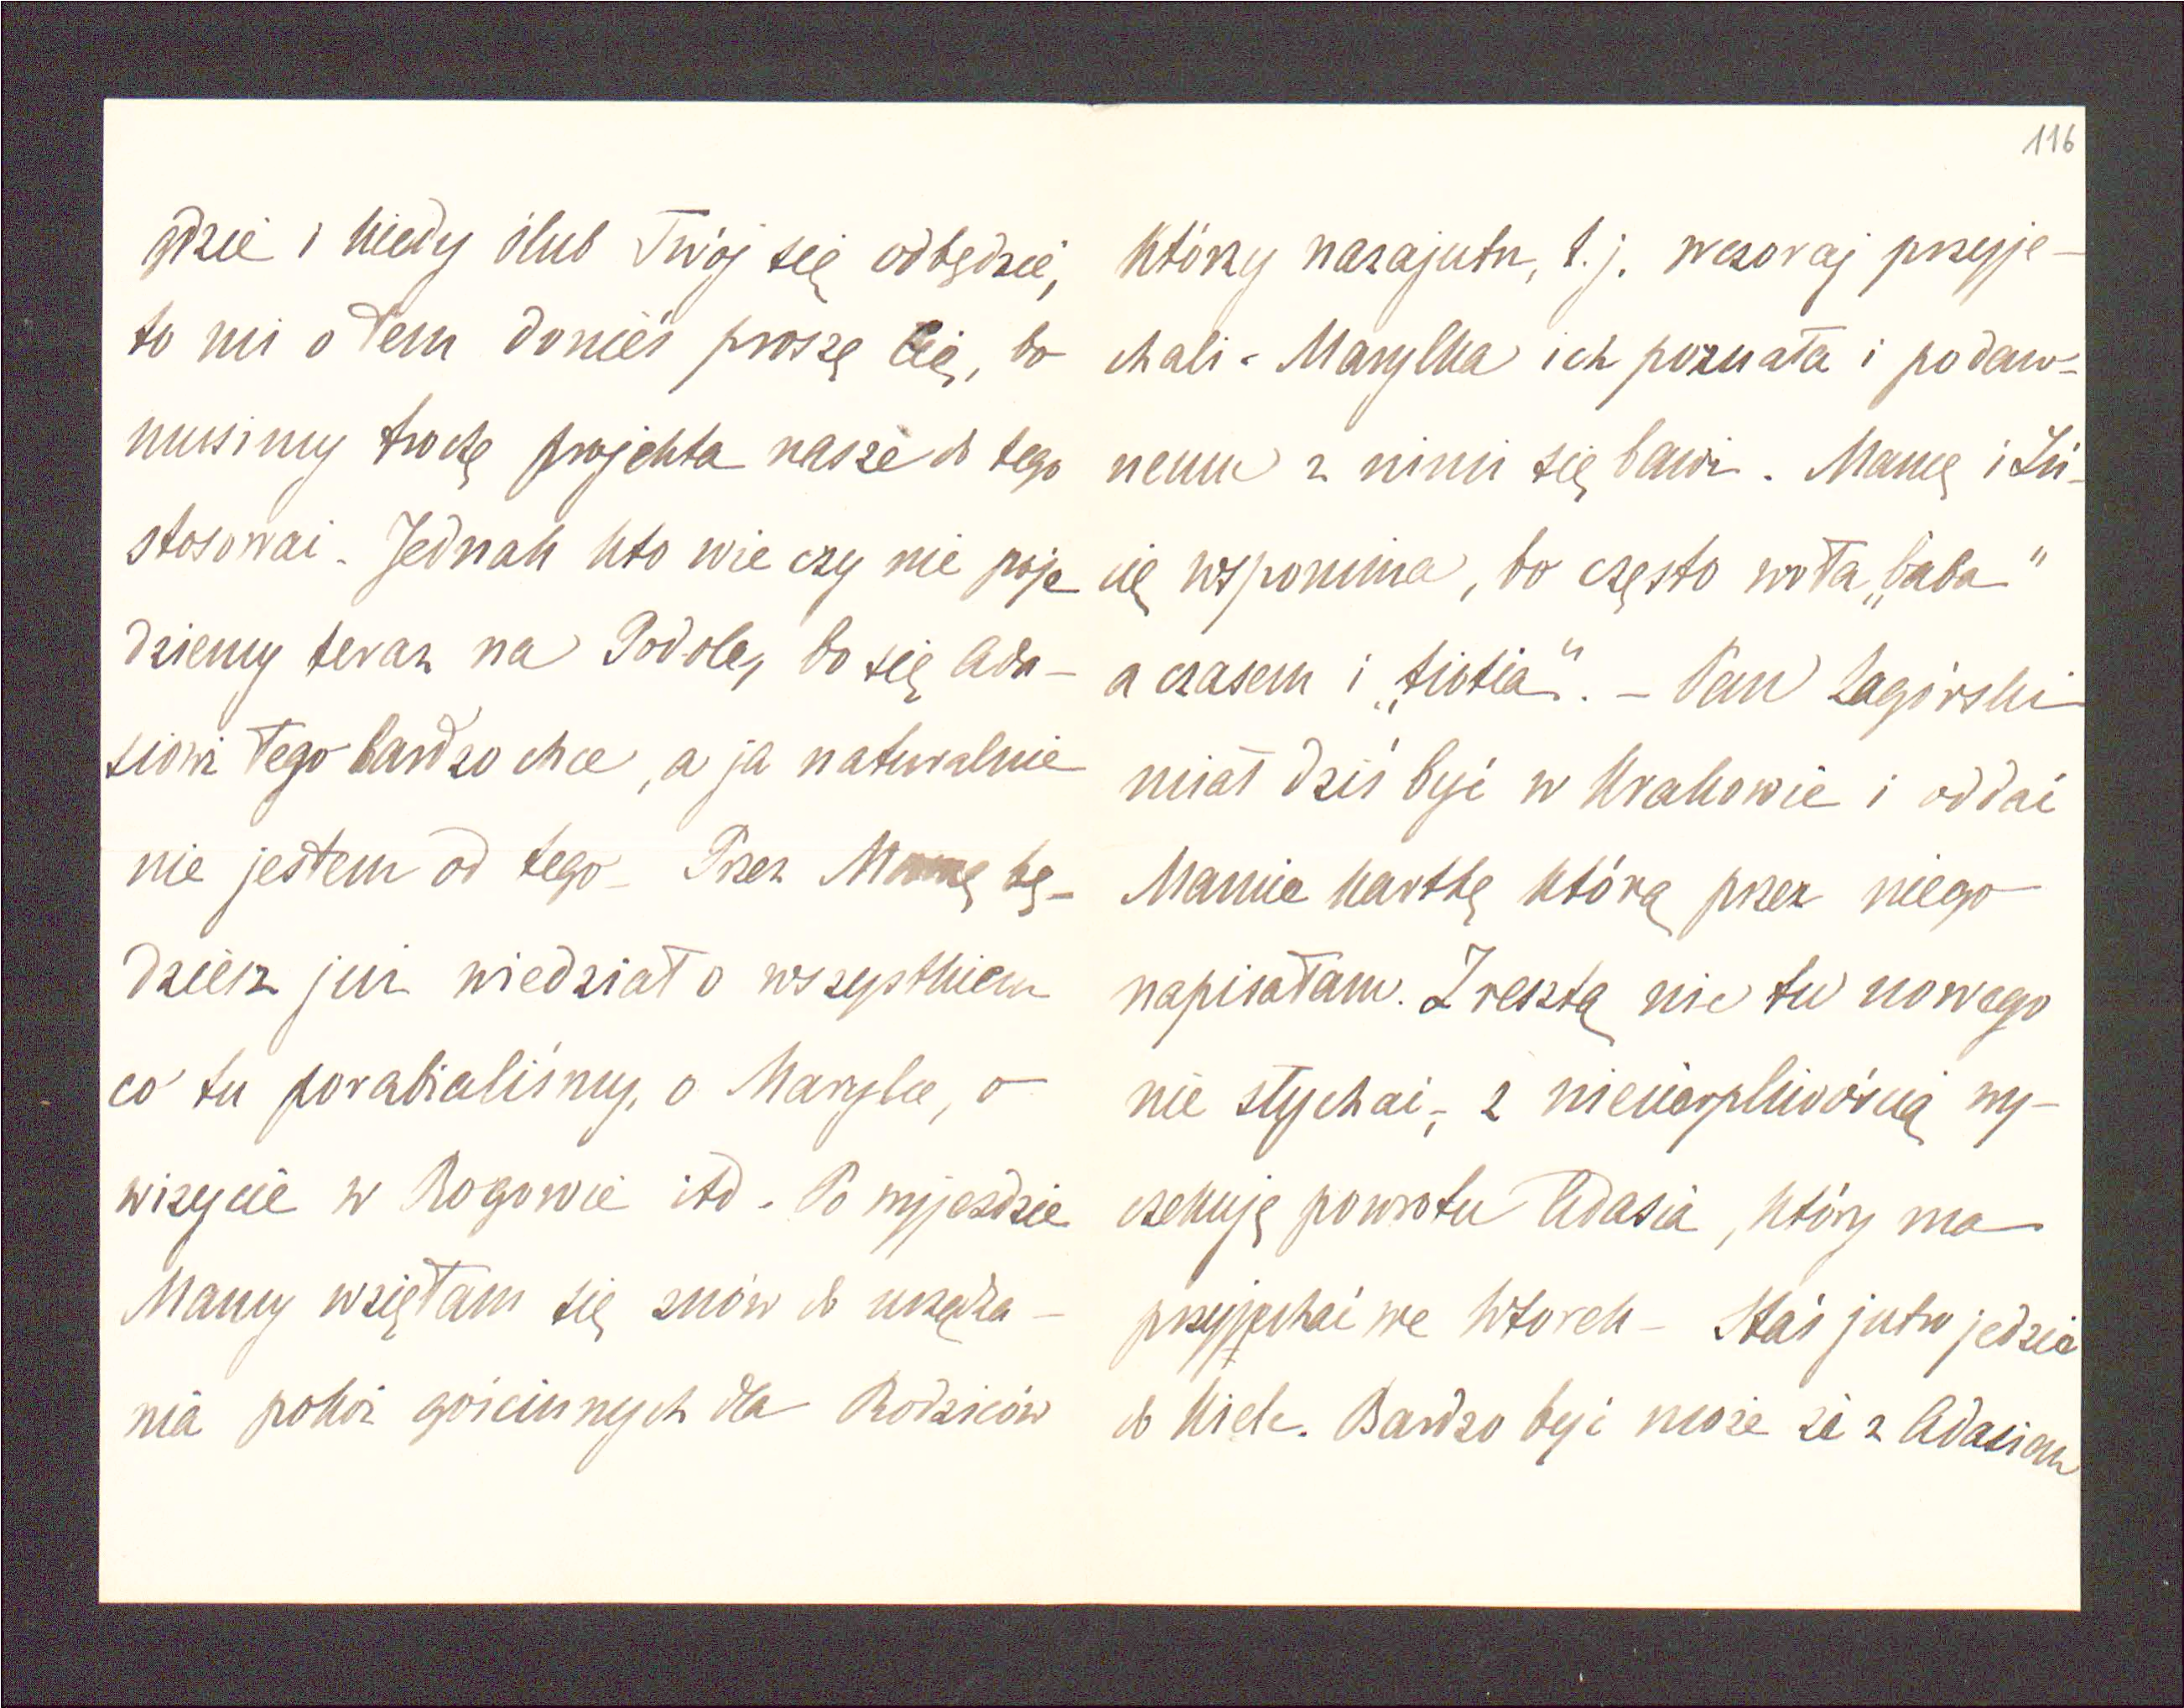 gdzie i kiedy ślub Twój się odbędzie,
to mi o tem donieś proszę Cię, bo
musimy trochę projekta nasze do tego
stosować. Jednak kto wie czy nie poje
dziemy teraz na Podole, bo się Ada-
siowi tego bardzo chce, a ja naturalnie
nie jestem od tego. Przez Mamę bę-
dziesz już wiedział o wszystkiem
co tu porabialiśmy, o Marylce, o
wizycie w Rogowie itd. Po wyjezdzie
Mamy wzięłam się znów do urządza-
nia pokoi gościnnych dla Rodziców
116
którzy nazajutrz, t.j. wczoraj przyje-
chali. Marylka ich poznała i podaw-
nemu z nimi się bawi. Mamę i Zu-
cię wspomina, bo często woła „baba"
a czasem i „tiotia". - Pan Zagórski
miał dziś być w Krakowie i oddać
Mamie kartkę którą przez niego
napisałam. Zresztą nic tu nowego
nie słychać, z niecierpliwością wy-
czekuję powrotu Adasia, który ma
przyjechać we Wtorek - Staś jutro jedzie
do Kielc. Bardzo być może że z Adasiem